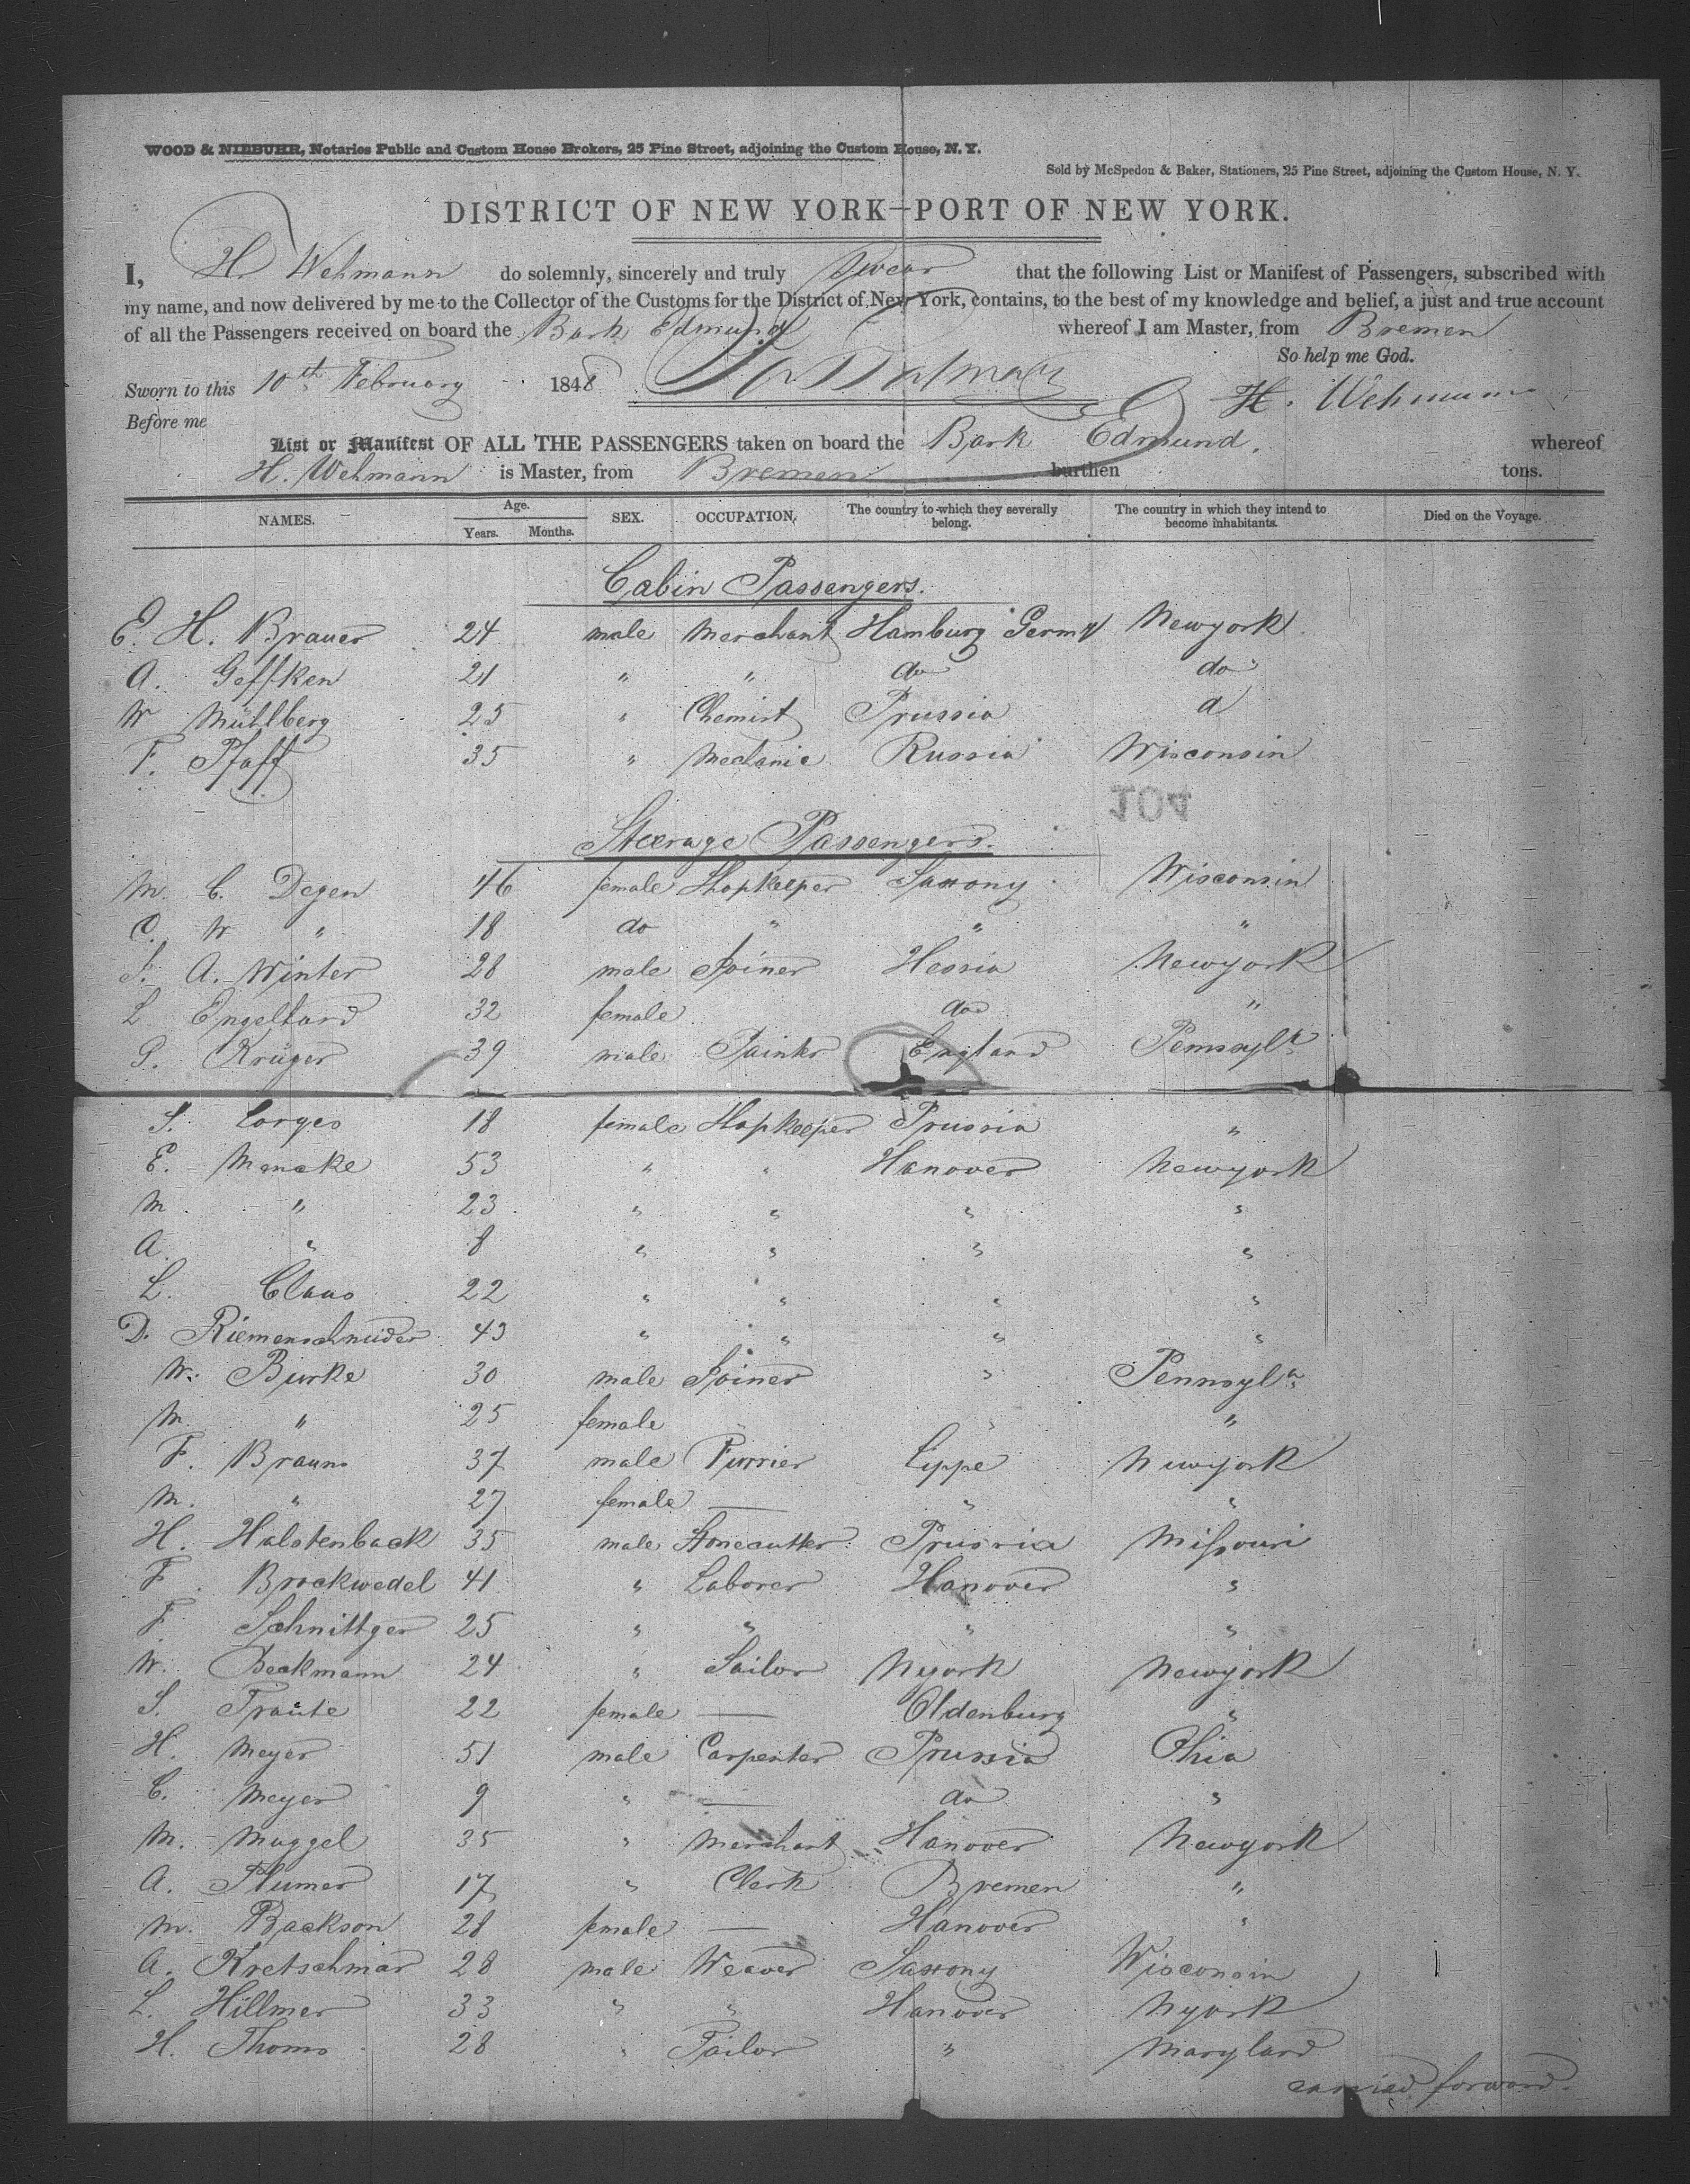 WOOD & NIEBUHR, Notaries Public and Custom House Brokers, 25 Pine Street, adjoining the Custom House, N. Y.
Sold by McSpedon & Baker, Stationers, 25 Pine Street, adjoining the Custom House, N. Y.
DISTRICT OF NEW YORK—PORT OF NEW YORK.
I, H. Wehmann do solemnly, sincerely and truly swear that the following List or Manifest of Passengers, subscribed with
my name, and now delivered by me to the Collector of the Customs for the District of New York, contains, to the best of my knowledge and belief, a just and true account
of all the Passengers received on board the Bark Edmund whereof I am Master, from Bremen
So help me God.
Sworn to this 10th February 1848
H. Wehmann
Before me
List or Manifest OF ALL THE PASSENGERS taken on board the Bark Edmund. whereof
H. Wehmann is Master, from Bremen burthen tons.
NAMES. Age. Years. Months. SEX. OCCUPATION. The country to which they severally belong. The country in which they intend to become inhabitants. Died on the Voyage.
Cabin Passengers.
E. H. Brauer 24 male Merchant Hamburg Germy Newyork
A. Geffken 21 " " do do
W Mühlberg 25 " Chemist Prussia d
F. Pfaff 35 " Mechanic Russia Wisconsin
104
Steerage Passengers.
M. C. Degen 46 female Shopkeeper Saxony Wisconsin
C. W " 18 do " " "
F. A. Winter 28 male Joiner Hessia Newyork
L Engelhard 32 female do "
G. Krüger 39 male Painter England Pensylv
S. Lorges 18 female Shopkeeper Prussia "
E. Mencke 53 " " Hanover Newyork
M " 23 " " " "
A " 8 " " " "
L. Claus 22 " " " "
D. Riemenschneider 43 " " " "
W. Burke 30 male Joiner " Pennsylv
M. " 25 female "
F. Braun 37 male Furrier Lippe Newyork
M. " 27 female — " "
H. Halstenback 35 male Stonecutter Prussia Missouri
F. Brockwedel 41 " Laborer Hanover "
F. Schnittger 25 " " " "
W. Beckmann 24 " Sailor Nyork Newyork
S. Traute 22 female — Oldenburg "
H. Meyer 51 male Carpenter Prussia Ohio
C. Meyer 9 " — do "
M. Muggel 35 " Merchant Hanover Newyork
A. Plumer 17 " Clerk Bremen "
M. Backson 28 female — Hanover "
A. Kretschmar 28 male Weaver Saxony Wisconsin
L. Hillmer 33 " " Hanover Nyork
H. Thoms 28 " Tailor " Maryland
carried forward.